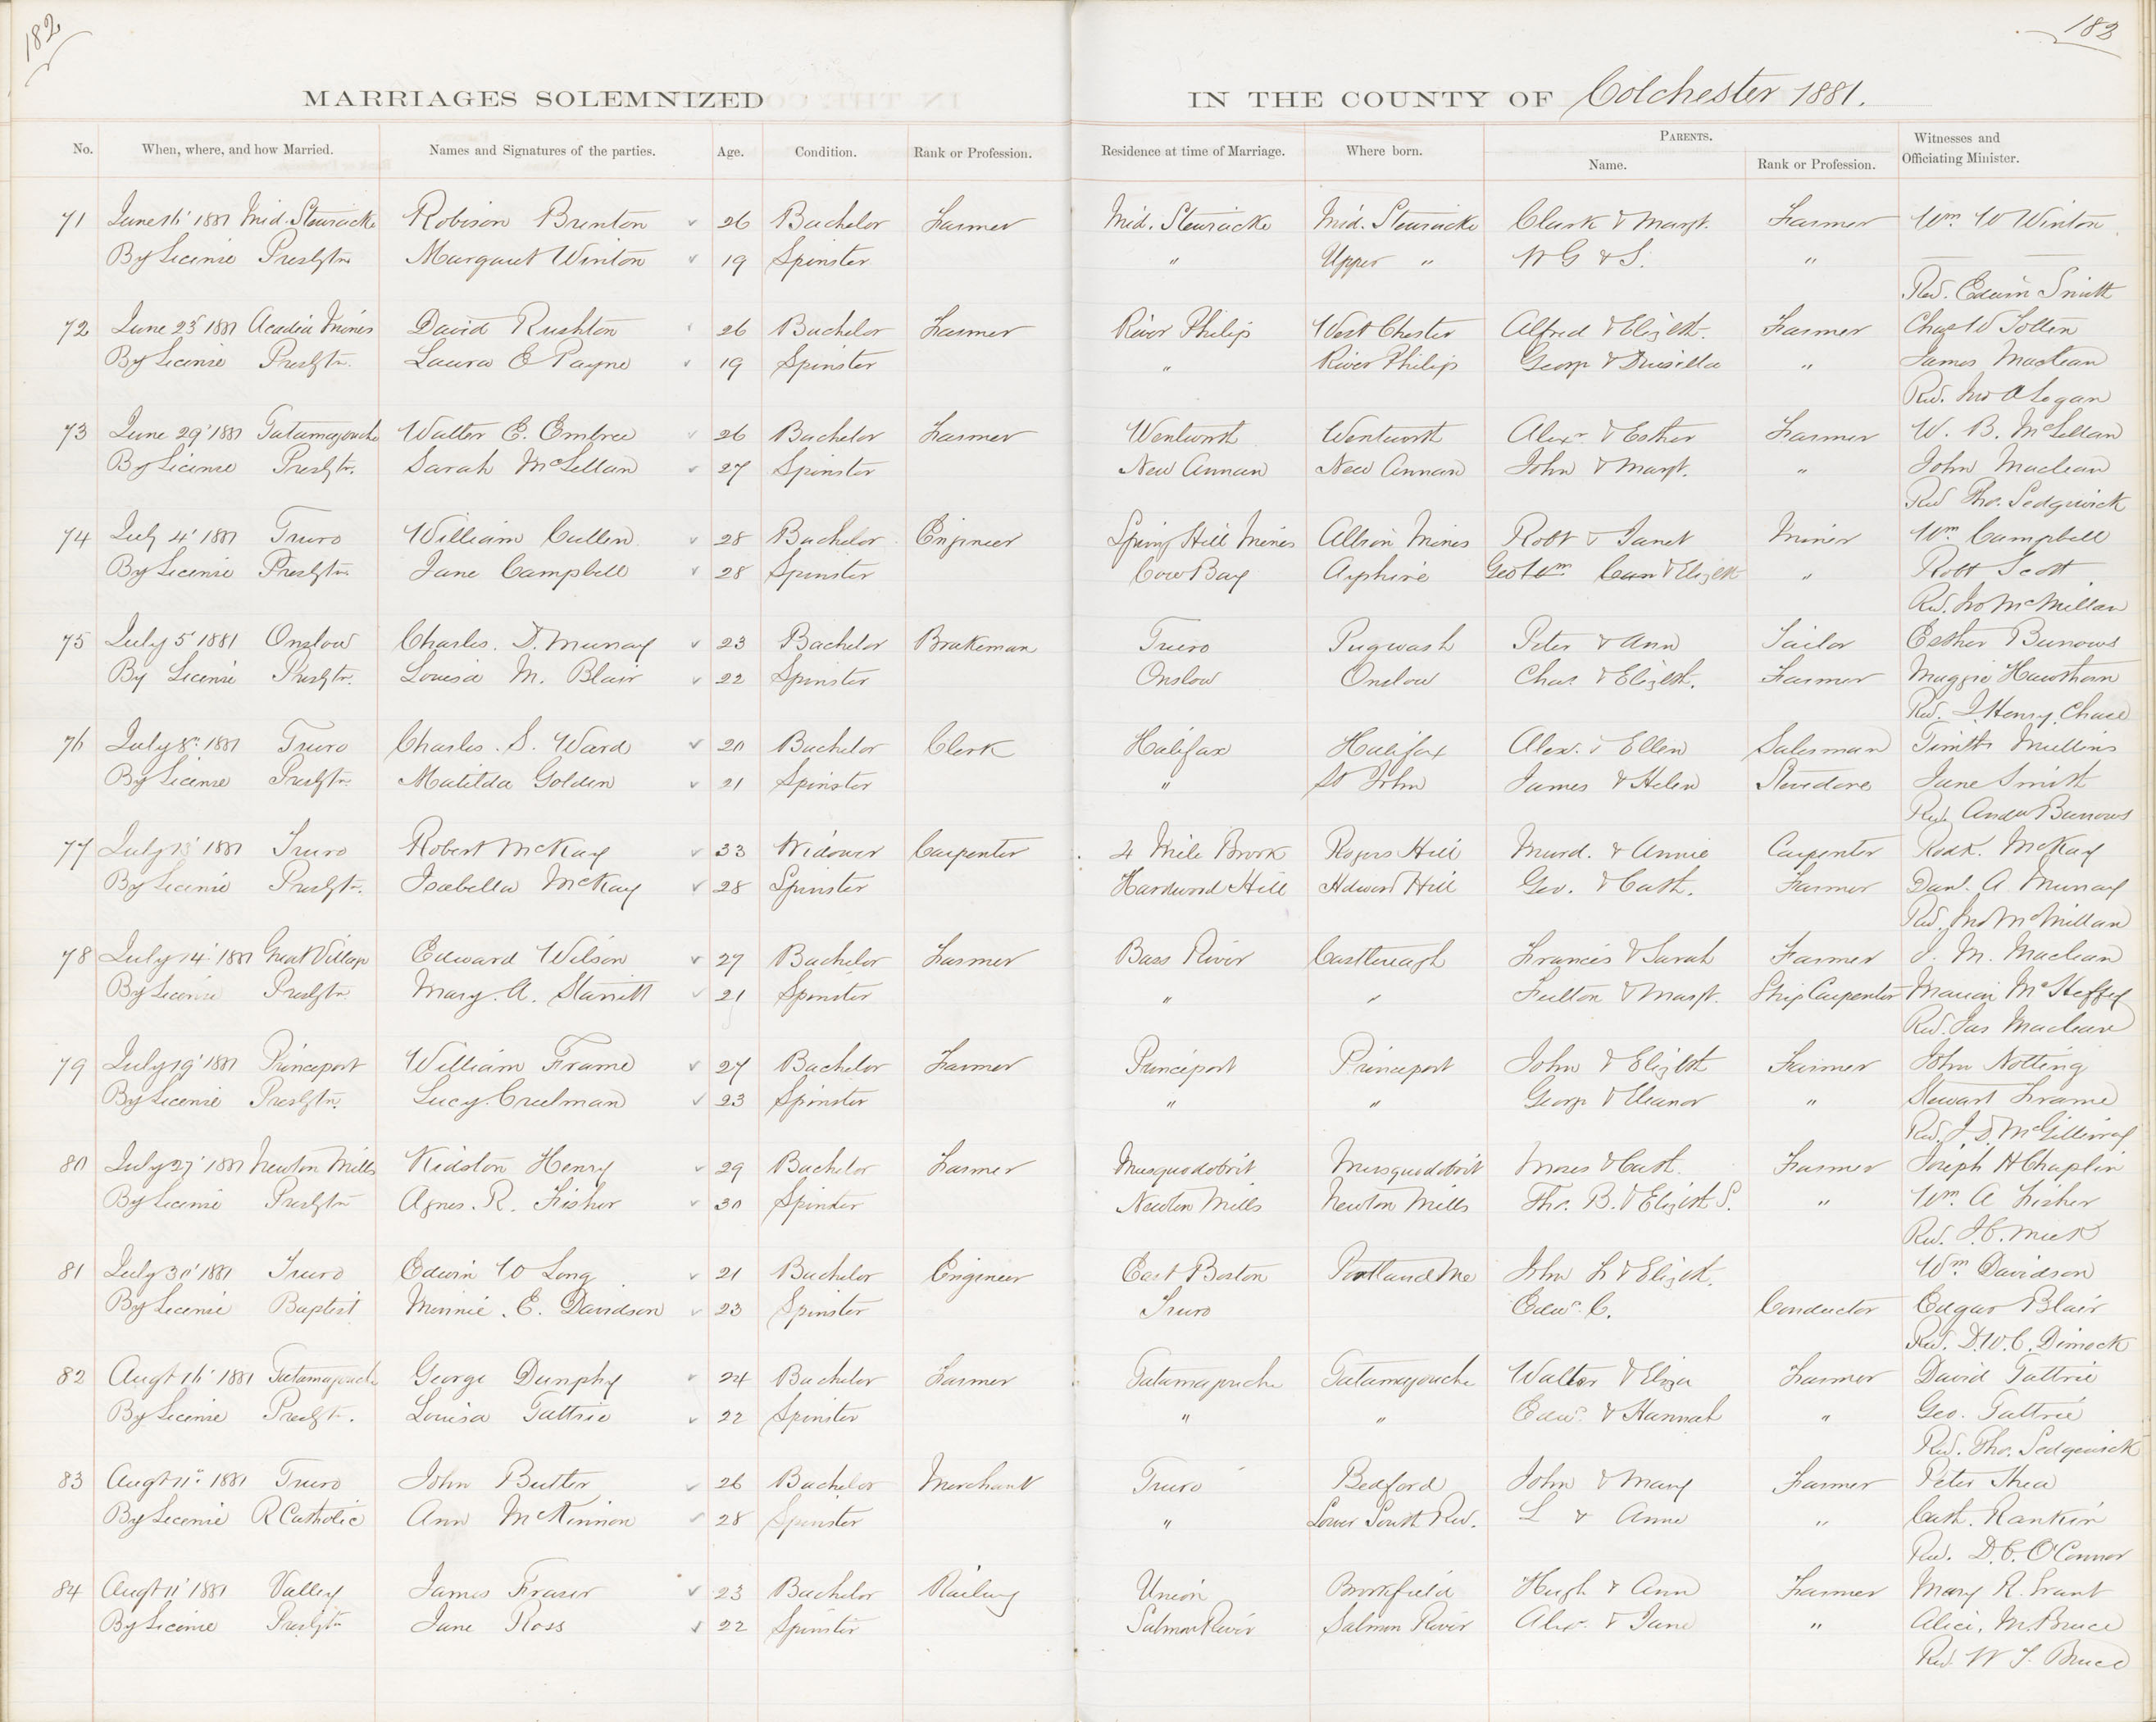 182
183
MARRIAGES SOLEMNIZED IN THE COUNTY OF Colchester 1881.
No. When, where, and how Married. Names and Signatures of the parties. Age. Condition. Rank or Profession. Residence at time of Marriage. Where born. PARENTS. Name. Rank or Profession. Witnesses and Officiating Minister.
71 June 16' 1881 Mid. Stewiacke Robison Brenton 26 Bachelor Farmer Mid. Stewiacke Mid. Stewiacke Clark & Margt. Farmer Wm. W Winton
By License Presbytn Margaret Winton 19 Spinster " Upper " W G & S. "
Rev. Edwin Smith
72 June 23' 1881 Acadia Mines David Rushton 26 Bachelor Farmer River Philip West Chester Alfred & Elizbth. Farmer Chas W Totten
By License Presbytn. Laura E Payne 19 Spinster " River Philip George & Drusilla " James Maclean
Rev. Jno A Logan
73 June 29' 1881 Tatamagouche Walter E. Embree 26 Bachelor Farmer Wentworth Wentworth Alexr. & Esther Farmer W. B. McLellan
By License Presbytn. Sarah McLellan 27 Spinster New Annan New Annan John & Margt. " John Maclean
Rev Thos. Sedgwick
74 July 4' 1881 Truro William Cullen 28 Bachelor Engineer Spring Hill Mines Albion Mines Robt & Janet Miner Wm Campbell
By License Presbytn. Jane Campbell 28 Spinster Cow Bay Ayshire & Elizbth " Robt Scott
Rev. Jno McMillan
75 July 5' 1881 Onslow Charles. D. Murray 23 Bachelor Brakeman Truro Pugwash Peter & Ann Tailor Esther Burrows
By License Presbytn. Louisa M. Blair 22 Spinster Onslow Onslow Chas & Elizbth. Farmer Maggie Hawthorn
Rev. J. Henry Chase
76 July 8" 1881 Truro Charles. S. Ward 20 Bachelor Clerk Halifax Halifax Alex. & Ellen Salesman Timth Mullins
By License Presbytn Matilda Golden 21 Spinster " St John James & Helen Stevedore Jane Smith
Rev. Andw Burrows
77 July 13' 1881 Truro Robert McKay 33 Widower Carpenter 4 Mile Brook Rogers Hill Murd. & Annie Carpenter Rodk. McKay
By License Presbytn. Isabella McKay 28 Spinster Hardwood Hill Hdwood Hill Geo. & Cath. Farmer Danl. A Murray
Rev. Jno McMillan
78 July 14' 1881 Great Village Edward Wilson 27 Bachelor Farmer Bass River Castlereagh Francis & Sarah Farmer J. M. Maclean
By License Presbytn Mary. A. Starritt 21 Spinster " " Fulton & Margt. Ship Carpenter Marion McHeffey
Rev. Jas Maclean
79 July 19' 1881 Princeport William Frame 27 Bachelor Farmer Princeport Princeport John & Elizbth Farmer John Notting
By License Presbytn. Lucy Creelman 23 Spinster " " George & Eleanor " Stewart Frame
Rev. J. D. McGillivray
80 July 27' 1881 Newton Mills Kidston Henry 29 Bachelor Farmer Musquodobit Musquodobit Moses & Cath. Farmer Joseph H Chaplin
By License Presbytn Agnes. R. Fisher 30 Spinster Newton Mills Newton Mills Thos. B. & Elizbth S. " Wm. A Fisher
Rev. J. C. Meek
81 July 30' 1881 Truro Edwin W Long 21 Bachelor Engineer East Boston Portland Me John L & Elizbth. Wm. Davidson
By License Baptist Minnie. E. Davidson 23 Spinster Truro Edwd. C. Conductor Edgar Blair
Rev. D. W. C. Dimock
82 Augt 16' 1881 Tatamagouche George Dunphy 24 Bachelor Farmer Tatamagouche Tatamagouche Walter & Eliza Farmer David Tattrie
By License Presbytn. Louisa Tattrie 22 Spinster " " Edwd. & Hannah " Geo. Tattrie
Rev. Thos. Sedgewick
83 Augt 11" 1881 Truro John Butler 26 Bachelor Merchant Truro Bedford John & Mary Farmer Peter Shea
By License R Catholic Ann McKinnon 28 Spinster " Lower South Riv. L & Anne " Cath. Rankin
Rev. D. C. O'Connor
84 Augt 11' 1881 Valley James Fraser 23 Bachelor Railway Union Brookfield Hugh & Ann Farmer Mary R. Grant
By License Presbytn Jane Ross 22 Spinster Salmon River Salmon River Alexr. & Jane " Alice. M. Bruce
Rev. W T. Bruce